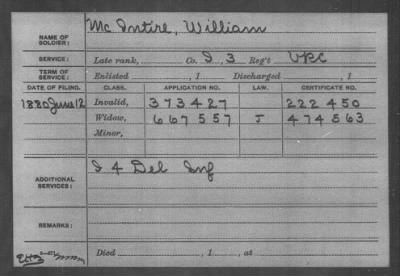 NAME OF SOLDIER: Mc Intire, William
SERVICE: Late rank, Co. I, 3 Reg't VRC
TERM OF SERVICE: Enlisted , 1 Discharged , 1
DATE OF FILING. CLASS. APPLICATION NO. LAW. CERTIFICATE NO.
1880 June 12 Invalid, 373427 222450
Widow, 667557 J 474563
Minor,
ADDITIONAL SERVICES: I 4 Del Inf
REMARKS:
Died , 1 , at